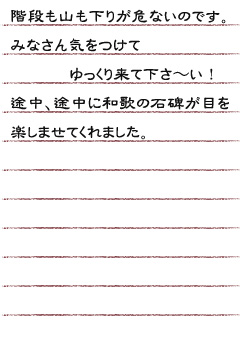 階段も山も下りが危ないのです。
みなさん気をつけて
ゆっくり来て下さ～い！
途中、途中に和歌の石碑が目を
楽しませてくれました。